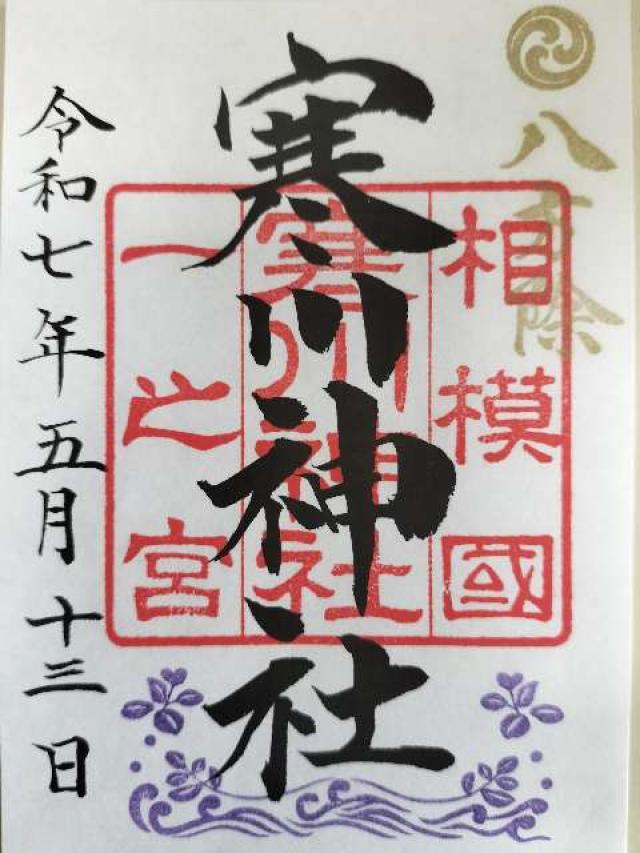 八方除
相模國
寒川神社
一之宮
寒川神社
令和七年五月十三日